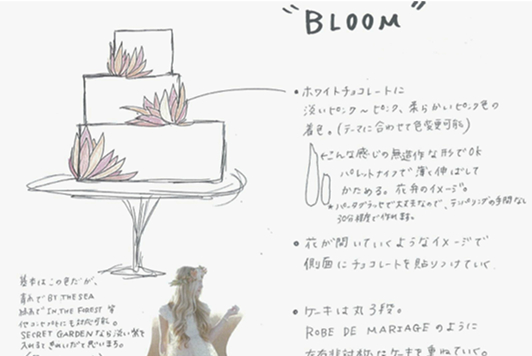 "BLOOM"
• ホワイトチョコレートに
淡いピンク〜ピンク、柔らかいピンク色の
着色。(テーマに合わせて色変更可能)
こんな感じの無造作な形でOK
パレットナイフで薄く伸ばして
かためる。花弁のイメージ。
*パータグラッセで大丈夫なので、テンパリングの手間なし
30分程度で作れます。
• 花が開いていくようなイメージで
側面にチョコレートを貼りつけていく
• ケーキは丸3段。
ROBE DE MARIAGEのように
左右非対称にケーキを重ねていく。
基本はこの色だが、
青系でBY THE SEA
緑系でIN THE FOREST 等
他コンセプトにも対応可能。
SECRET GARDENなら淡い紫を
入れるときれいだと思います。